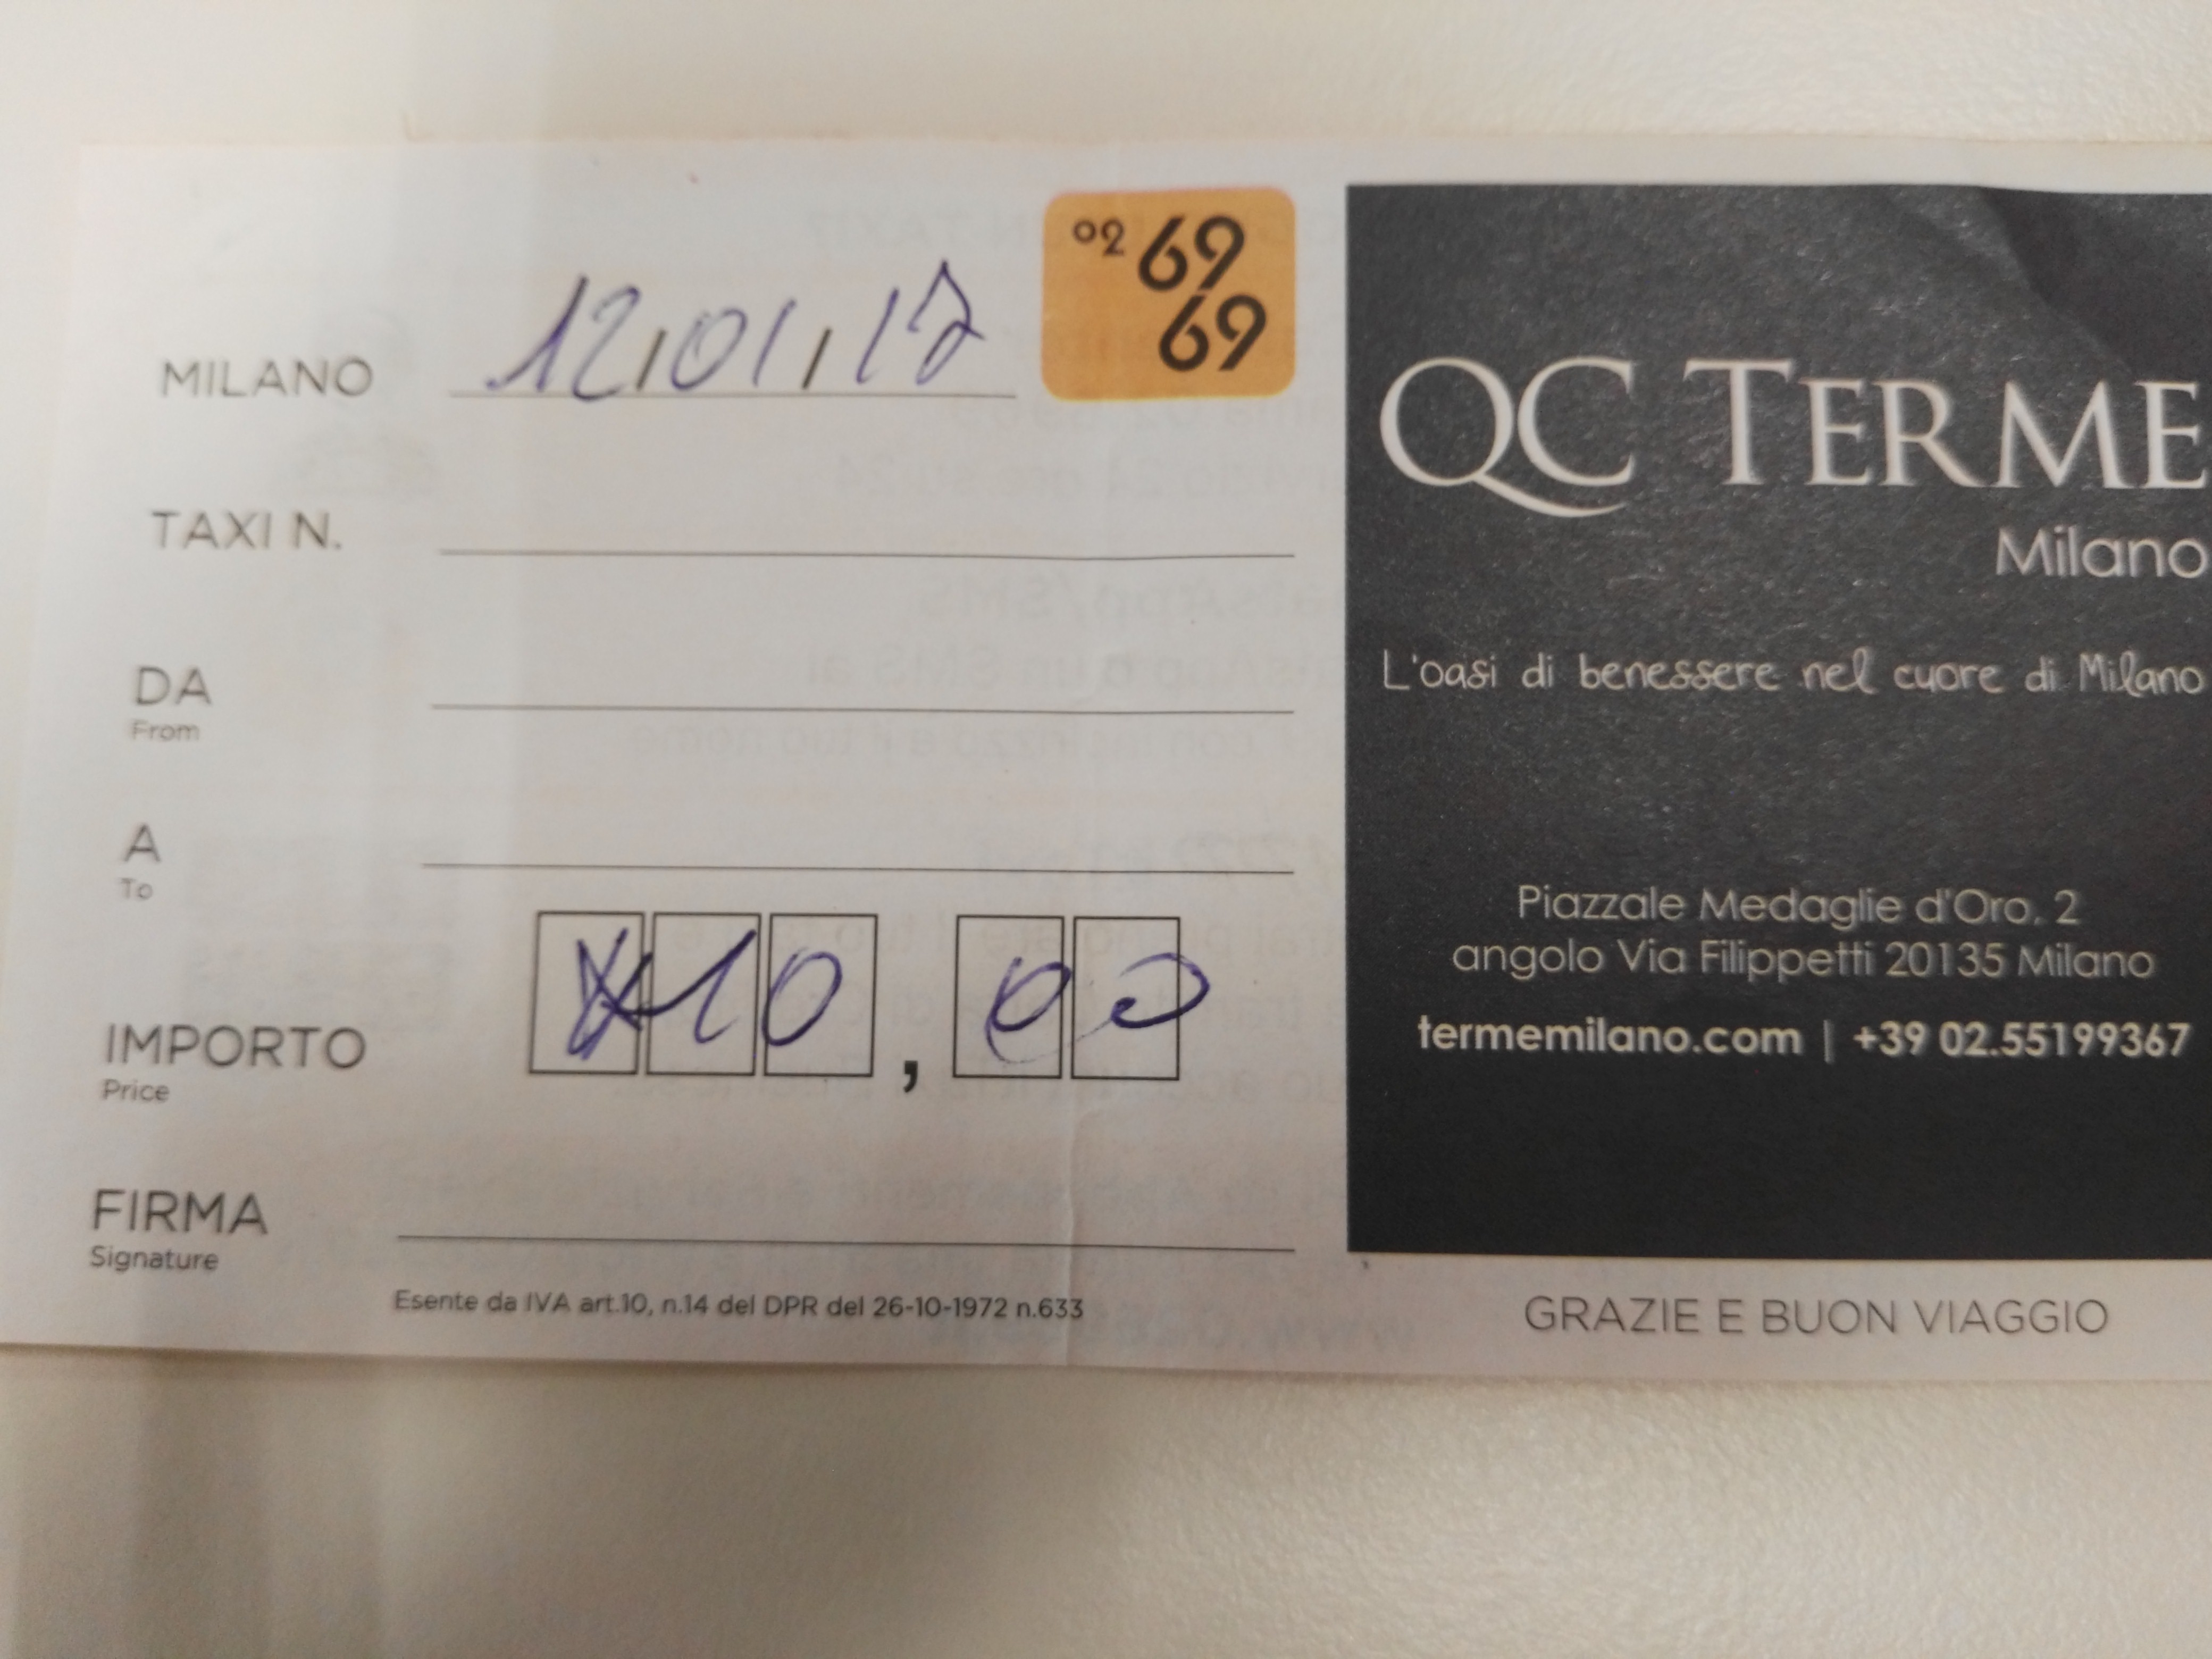 MILANO 12/01/17
02 69
69
TAXI N.
DA
From
A
To
IMPORTO 10,00
Price
FIRMA
Signature
Esente da IVA art.10, n.14 del DPR del 26-10-1972 n.633
QC TERME
Milano
L'oasi di benessere nel cuore di Milano
Piazzale Medaglie d'Oro, 2
angolo Via Filippetti 20135 Milano
termemilano.com | +39 02.55199367
GRAZIE E BUON VIAGGIO